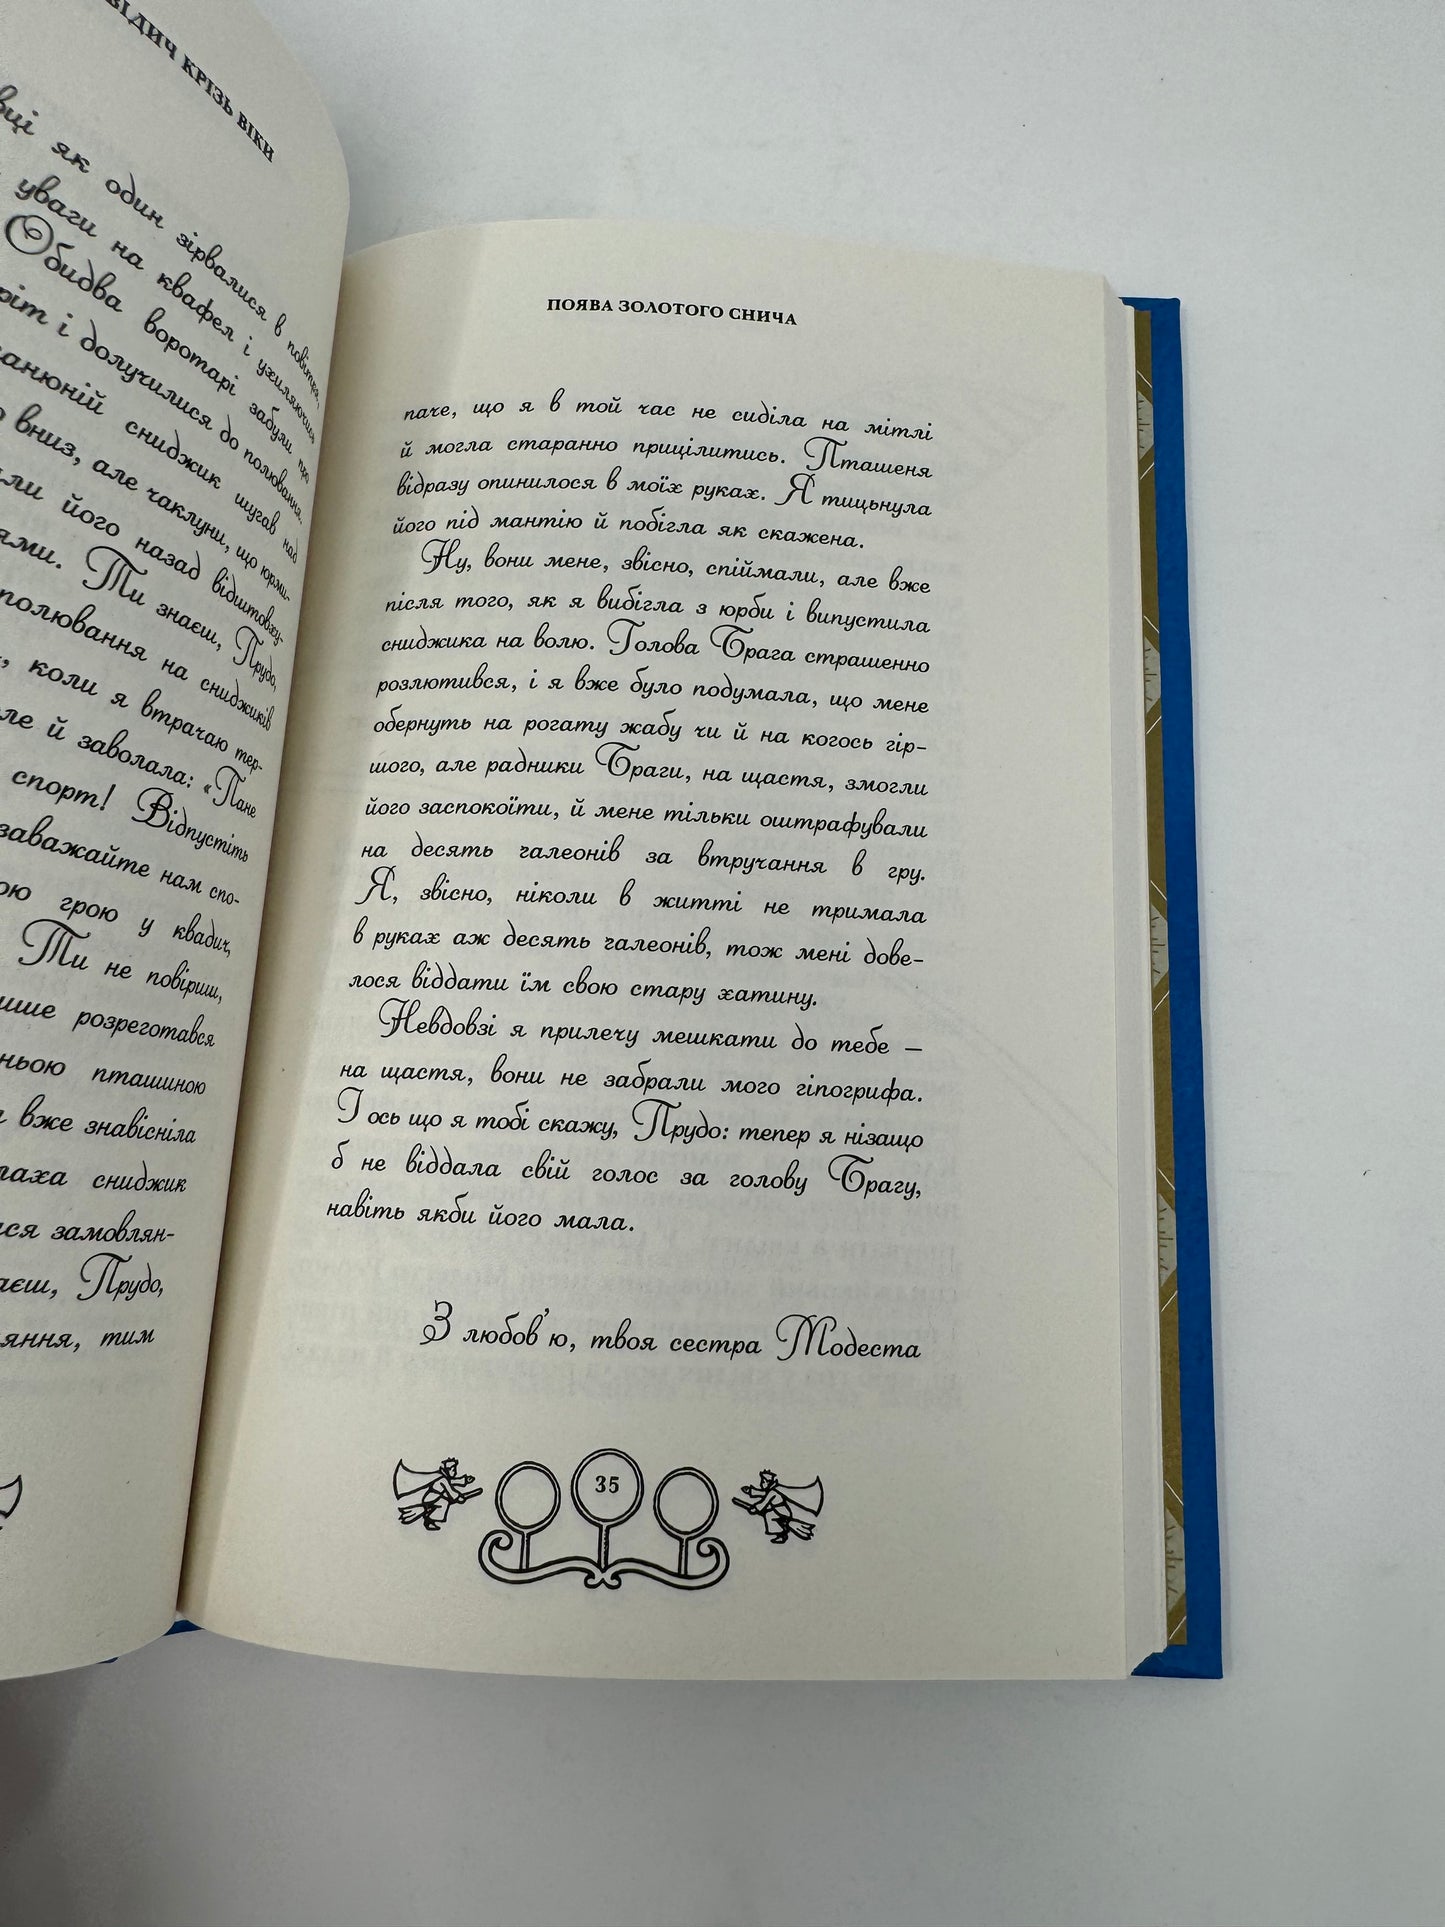 ВІДИЧ КРІЗЬ ВІКИ
як один зірвалися в повітря,
уваги на квафел і ухиляючися
Обидва воротарі забули про
і долучилися до полювання.
сниджик шугав над
вниз, але чаклуни, що юрми-
його назад відштовху-
Ти знаєш, Прудо,
полювання на сниджиків
коли я втрачаю тер-
й заволала: «Пане
спорт! Відпустіть
заважайте нам спо-
грою у квадич,
Ти не повіриш,
розреготався
пташиною
вже знавісніла
сниджик
замовлян-
Прудо,
тим
ПОЯВА ЗОЛОТОГО СНИЧА
паче, що я в той час не сиділа на мітлі
й могла старанно прицілитись. Пташеня
відразу опинилося в моїх руках. Я тицьнула
його під мантію й побігла як скажена.
Ну, вони мене, звісно, спіймали, але вже
після того, як я вибігла з юрби і випустила
сниджика на волю. Голова Брага страшенно
розлютився, і я вже було подумала, що мене
обернуть на рогату жабу чи й на когось гір-
шого, але радники Браги, на щастя, змогли
його заспокоїти, й мене тільки оштрафували
на десять галеонів за втручання в гру.
Я, звісно, ніколи в житті не тримала
в руках аж десять галеонів, тож мені дове-
лося віддати їм свою стару хатину.
Невдовзі я прилечу мешкати до тебе —
на щастя, вони не забрали мого гіпогрифа.
І ось що я тобі скажу, Прудо: тепер я нізащо
б не віддала свій голос за голову Брагу,
навіть якби його мала.
З любов'ю, твоя сестра Модеста
35